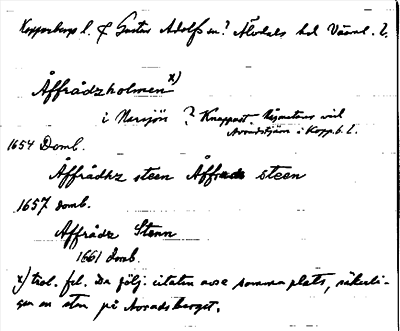 Kopparbergs l. & Gustav Adolfs sn? Älvdals hd Värml. l.
Åffrådzholmen x)
i Narsjön ? Knappast. Råmärket vid
Avradstjärn i Kopp.b. l.
1654 Domb.
Åffrådhz steen Åffrads steen
1657 domb.
Affrådz Stenn
1661 domb.
x) trol. fel. Da följ. citaten avse samma plats, säkerli-
gen en sten på Avradsberget.